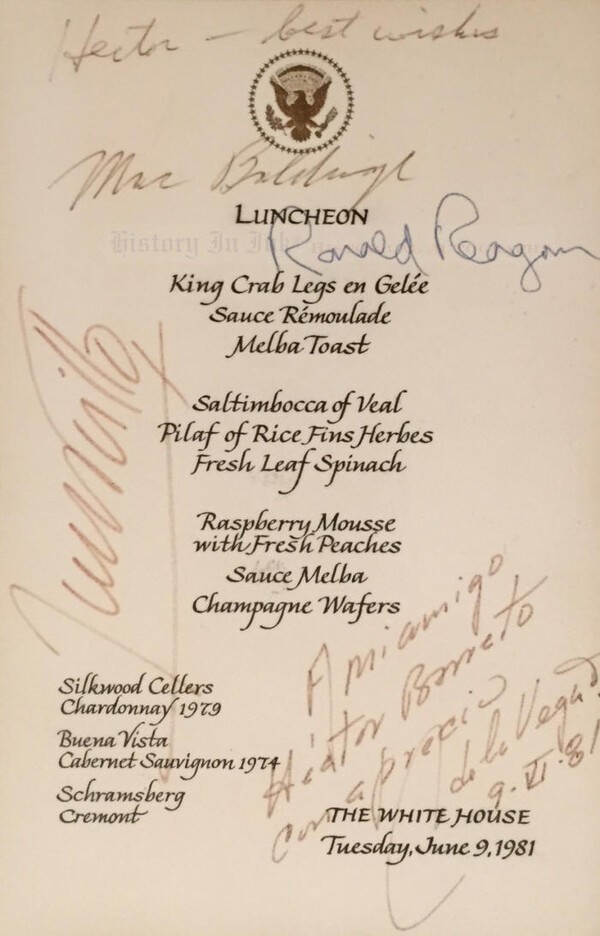 Hector — best wishes
Mac Baldrige
LUNCHEON
Ronald Reagan
History In Ink
King Crab Legs en Gelée
Sauce Rémoulade
Melba Toast
Saltimbocca of Veal
Pilaf of Rice Fins Herbes
Fresh Leaf Spinach
Raspberry Mousse
with Fresh Peaches
Sauce Melba
Champagne Wafers
A mi amigo
Héctor Barreto
con aprecio
de la Vega D.
9.VI.81
Silkwood Cellers
Chardonnay 1979
Buena Vista
Cabernet Sauvignon 1974
Schramsberg
Cremont
THE WHITE HOUSE
Tuesday, June 9, 1981